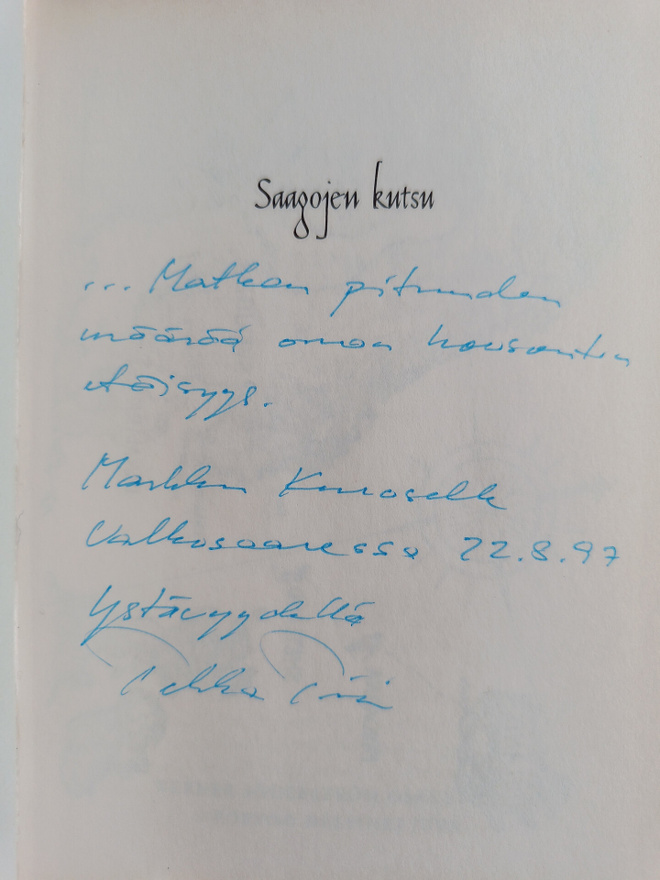 Saagojen kutsu
... Matkan pituuden
määrää oman horisontin
etäisyys.
Markku Kuroselle
Valkosaaressa 22.8.97
Ystävyydellä
Pekka Piri